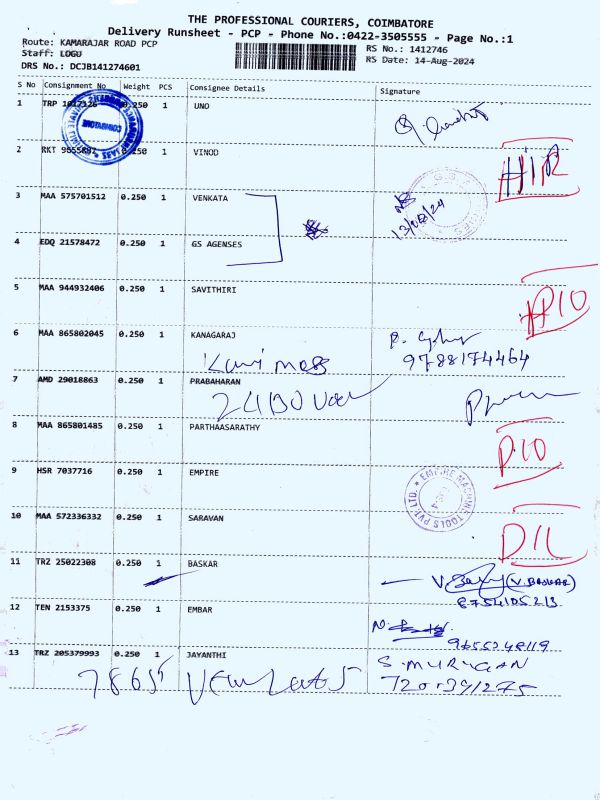 THE PROFESSIONAL COURIERS, COIMBATORE
Delivery Runsheet - PCP - Phone No.:0422-3505555 - Page No.:1
Route: KAMARAJAR ROAD PCP
Staff: LOGU
DRS No.: DCJB141274601
RS No.: 1412746
RS Date: 14-Aug-2024
S No Consignment No Weight PCS Consignee Details Signature
1 TRP 0.250 1 UNO
2 RKT 1 VINOD
HIR
3 MAA 575701512 0.250 1 VENKATA
13/08/24
4 EDQ 21578472 0.250 1 GS AGENSES
5 MAA 944932406 0.250 1 SAVITHIRI
PIO
6 MAA 865802045 0.250 1 KANAGARAJ
9788174464
7 AMD 29018863 0.250 1 PRABAHARAN
8 MAA 865801485 0.250 1 PARTHAASARATHY
PIO
9 HSR 7037716 0.250 1 EMPIRE
EMPIRE MACHINE TOOLS PVT LTD.
10 MAA 572336332 0.250 1 SARAVAN
D/L
11 TRZ 25022308 0.250 1 BASKAR
(V. BASKAR)
12 TEN 2153375 0.250 1 EMBAR
13 TRZ 205379993 0.250 1 JAYANTHI
S. MURUGAN